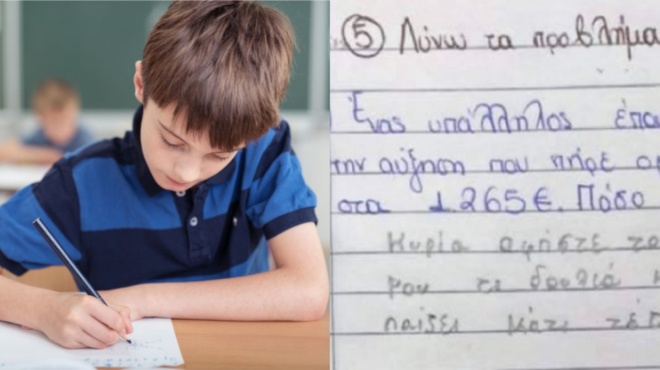 ⑤ Λύνω τα προβλήμα
Ένας υπάλληλος έπαι
την αύξηση που πήρε α
στα 1.265€. Πόσο
Κυρία αφήστε το
μου τι δουλιά
παίζει κάτι τέτ